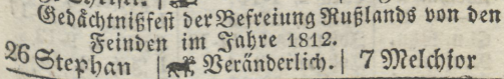 Gedächtnißfest der Befreiung Rußlands von den
Feinden im Jahre 1812.
26 Stephan | Veränderlich. | 7 Melchior